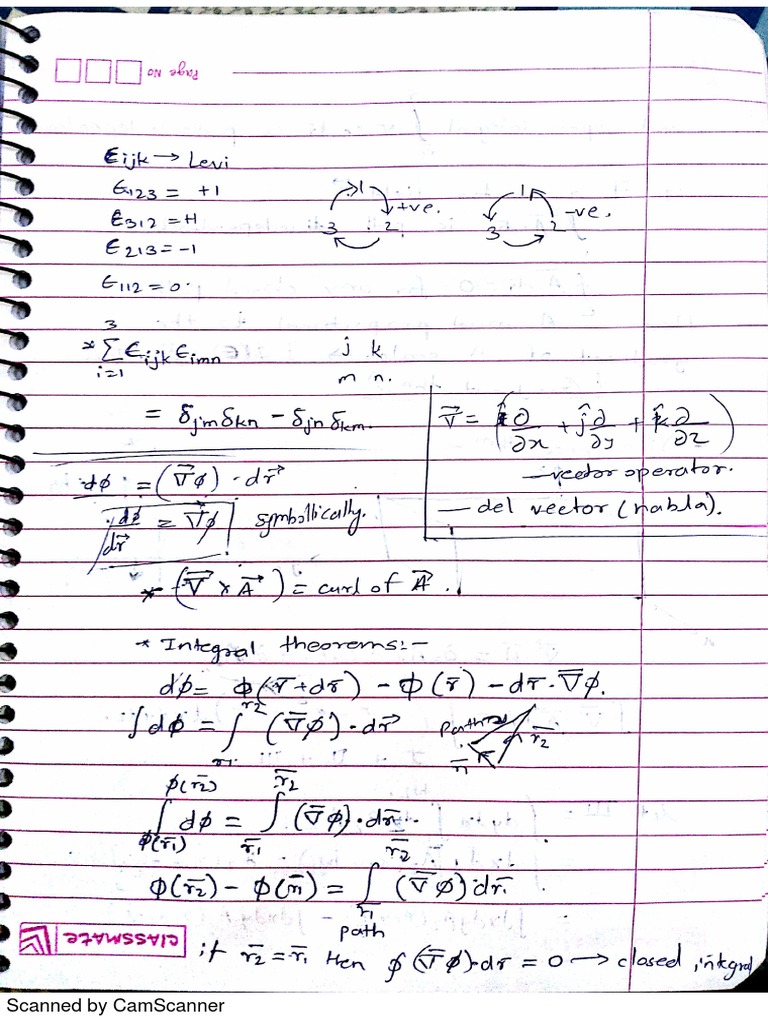 Page No
ϵijk → Levi
ϵ123 = +1
ϵ312 = +1
ϵ213 = -1
ϵ112 = 0.
1 2 3 +ve.
1 2 3 -ve.
* 3 ∑ i=1 ϵijk ϵimn
j k
m n.
= δjm δkn - δjn δkm.
∇⃗ = (î ∂/∂x + ĵ ∂/∂y + k̂ ∂/∂z)
— vector operator.
— del vector (nabla).
dϕ = (∇⃗ϕ) · dr⃗
dϕ/dr⃗ = ∇⃗ϕ symbollically.
* (∇⃗ × A⃗) = curl of A⃗.
* Integral theorems:-
dϕ = ϕ(r̄ + dr̄) - ϕ(r̄) - dr̄ · ∇̄ϕ.
∫dϕ = ∫ r1 r2 (∇̄ϕ) · dr⃗
path r̄1 r̄2
∫ ϕ(r̄1) ϕ(r̄2) dϕ = ∫ r̄1 r̄2 (∇̄ϕ) · dr̄.
ϕ(r̄2) - ϕ(r̄1) = ∫ r1 r̄2 (∇̄ϕ) · dr̄.
path
if r̄2 = r̄1 then ∮(∇̄ϕ) · dr̄ = 0 → closed integral
classmate
Scanned by CamScanner